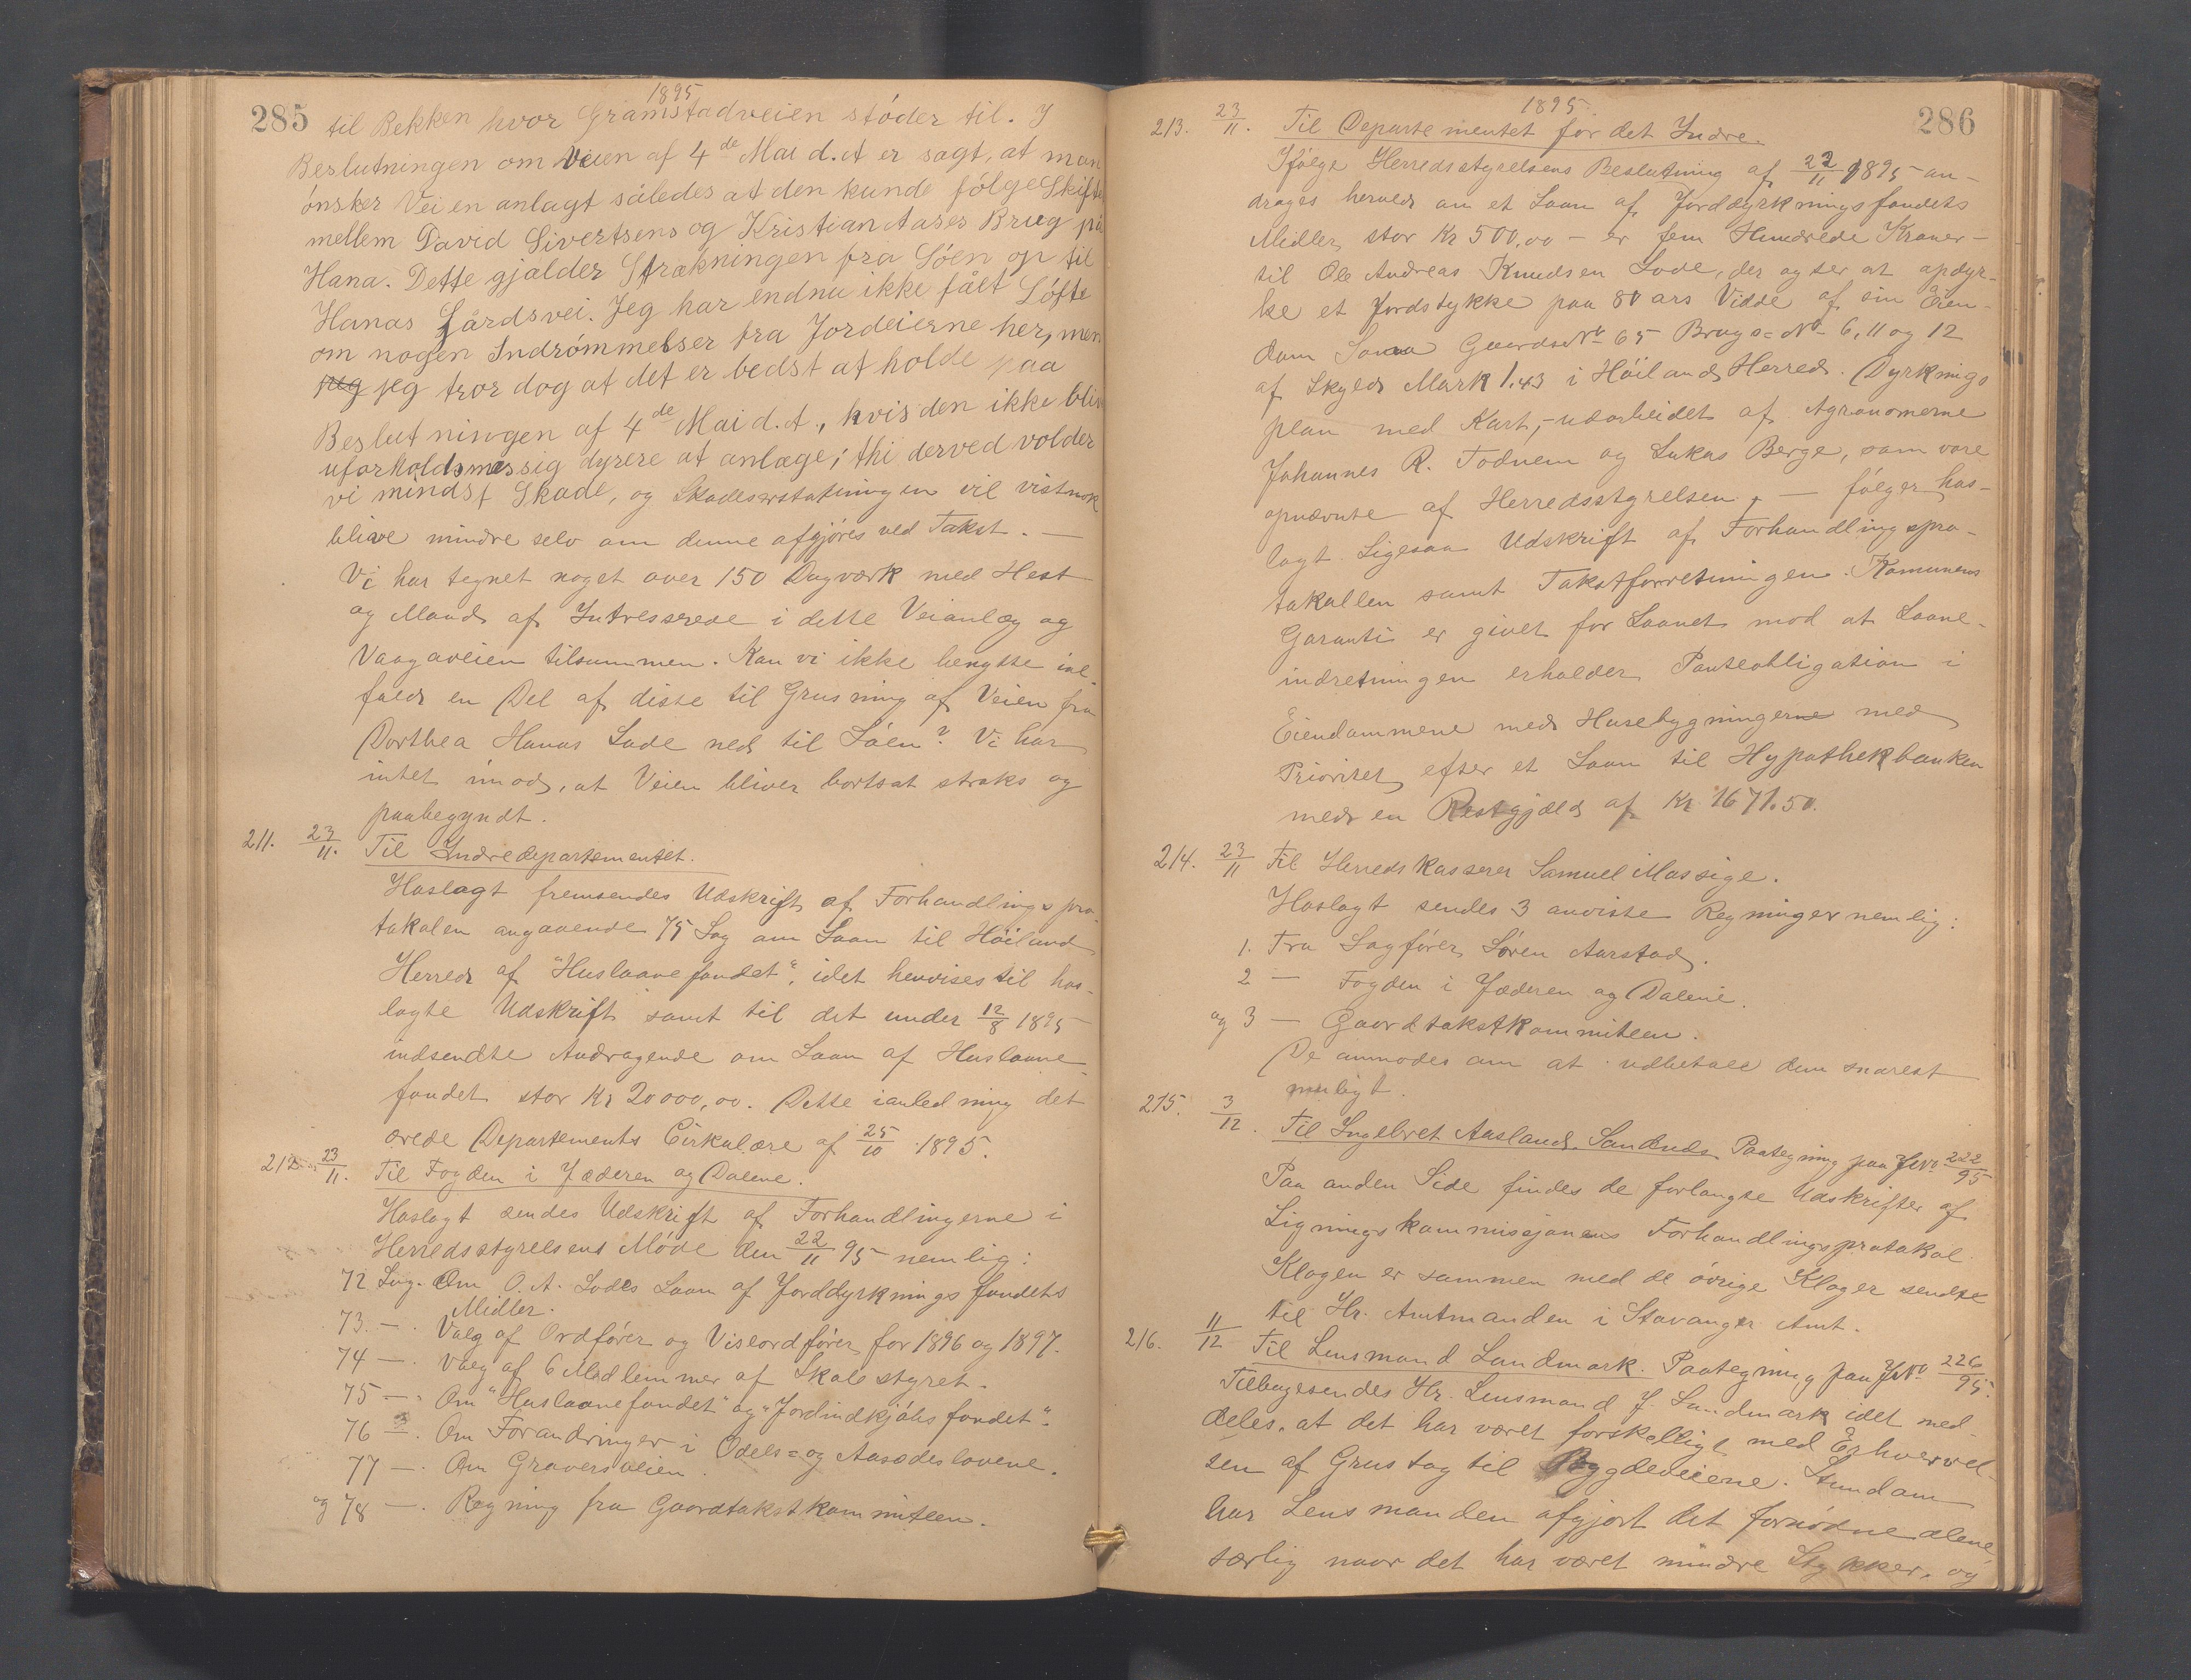 1895
285
til Bekken hvor Gramstadveien stóder til. I
Beslutningen om Veien af 4de Mai d. A er sagt, at man
ónsker Veien anlagt således at den kunde fólge Skifte
mellem David Sivertsens og Kristian Aases Brug på
Hana. Dette gjælder Strækningen fra Sóen op til
Hanas Gårdsvei. Jeg har endnu ikke fået Lófte
om nogen Indrómmelser fra Jordeierne her, men
jeg jeg tror dog at det er bedst at holde paa
Beslutningen af 4de Mai d. A., hvis den ikke bliv
uforholdsmessig dyrere at anlæge; thi derved volder
vi mindst Skade, og Skadeserstatningen vil vistnok
blive mindre selv om denne afgjóres ved Takst. —
Vi har tegnet noget over 150 Dagværk med Hest
og Mand af Intresserede i dette Veianlæg og
Vaagaveien tilsammen. Kan vi ikke benytte ial-
fald en Del af disse til Grusning af Veien fra
Dorthea Hanas Lade ned til Sóen? Vi har
intet imod, at Veien bliver bortsat straks og
paabegyndt.
211. 23/11. Til Indredepartementet.
Hoslagt fremsendes Udskrift af Forhandlingspro-
tokolen angaaende 75 Sag om Laan til Hóiland
Herred af "Huslaanefondet", idet henvises til hos-
lagte Udskrift samt til det under 12/8 1895
indsendte Andragende om Laan af Huslaane-
fondet stor Kr 20000,00. Dette ianledning det
ærede Departements Cirkulære af 25/10 1895.
212 23/11. Til Fogden i Jæderen og Dalene.
Hoslagt sendes Udskrift af Forhandlingerne i
Herredsstyrelsens Móde den 22/11 95 nemlig:
72 Sag. Om O. A. Lodes Laan af Jorddyrkningsfondets
Midler.
73. — . Valg af Ordfórer og Viseordfórer for 1896 og 1897.
74 — . Valg af 6 Medlemmer af Skolestyret.
75 — . Om "Huslaanefondet" og "Jordindkjóbsfondet".
76 — . Om Forandringer i Odels= og Aasædeslovene.
77 — . Om Graversveien.
og 78 — . Regning fra Gaardtakstkommiteen.
1895.
286
213. 23/11. Til Departementet for det Indre.
Ifólge Herredsstyrelsens Beslutning af 22/11 1895 an-
drages herved om et Laan af Jorddyrkningsfondets
Midler stor Kr 500,00 — er fem Hundrede Kroner —
til Ole Andreas Knudsen Lode, der agter at opdyr-
ke et Jordstykke paa 80 ars Vidde af sin Eien-
dom Gaards No 65 Brugs=No 6, 11 og 12
af Skyld Mark 1.43 i Hóiland Herred. Dyrknings
plan med Kart, - udarbeidet af Agronomerne
Johannes R. Todnem og Lukas Berge, som vare
opnævnte af Herredsstyrelsen, — fólger hos-
lagt. Ligesaa Udskrift af Forhandlingspro-
tokollen samt Takstforretningen. Komunens
Garanti er givet for Laanet mod at Laane-
indretningen erholder Panteobligation i
Eiendommene med Husebygningerne med
Prioritet efter et Laan til Hypothekbanken
med en Restgjæld af Kr. 1671.50.
214. 23/11 Til Herredskasserer Samuel Massige.
Hoslagt sendes 3 anviste Regninger nemlig:
1. Fra Sagfórer Sóren Aarstad.
2 — Fogden i Jæderen og Dalene.
og 3 — Gaardtakstkommiteen.
De anmodes om at udbetale dem snarest
muligt.
215. 3/12. Til Ingebret Aasland. Sandnes. Paategning paa JNo 222/95
Paa anden Side findes de forlangte Udskrifter af
Ligningskommissjonens Forhandlingsprotokol.
Klagen er sammen med de óvrige Klager sendte
til Hr. Amtmanden i Stavanger Amt.
216. 11/12 Til Lensmand Landmark. Paategning paa JNo 226/95.
Tilbagesendes Hr. Lensmand J. Landmark idet med-
deles, at det har været forskelligt med Erhvervel-
sen af Grustag til Bygdeveiene. Stundom
har Lensmanden afgjort det fornódne alene,
særlig naar det har været mindre Stykker, og